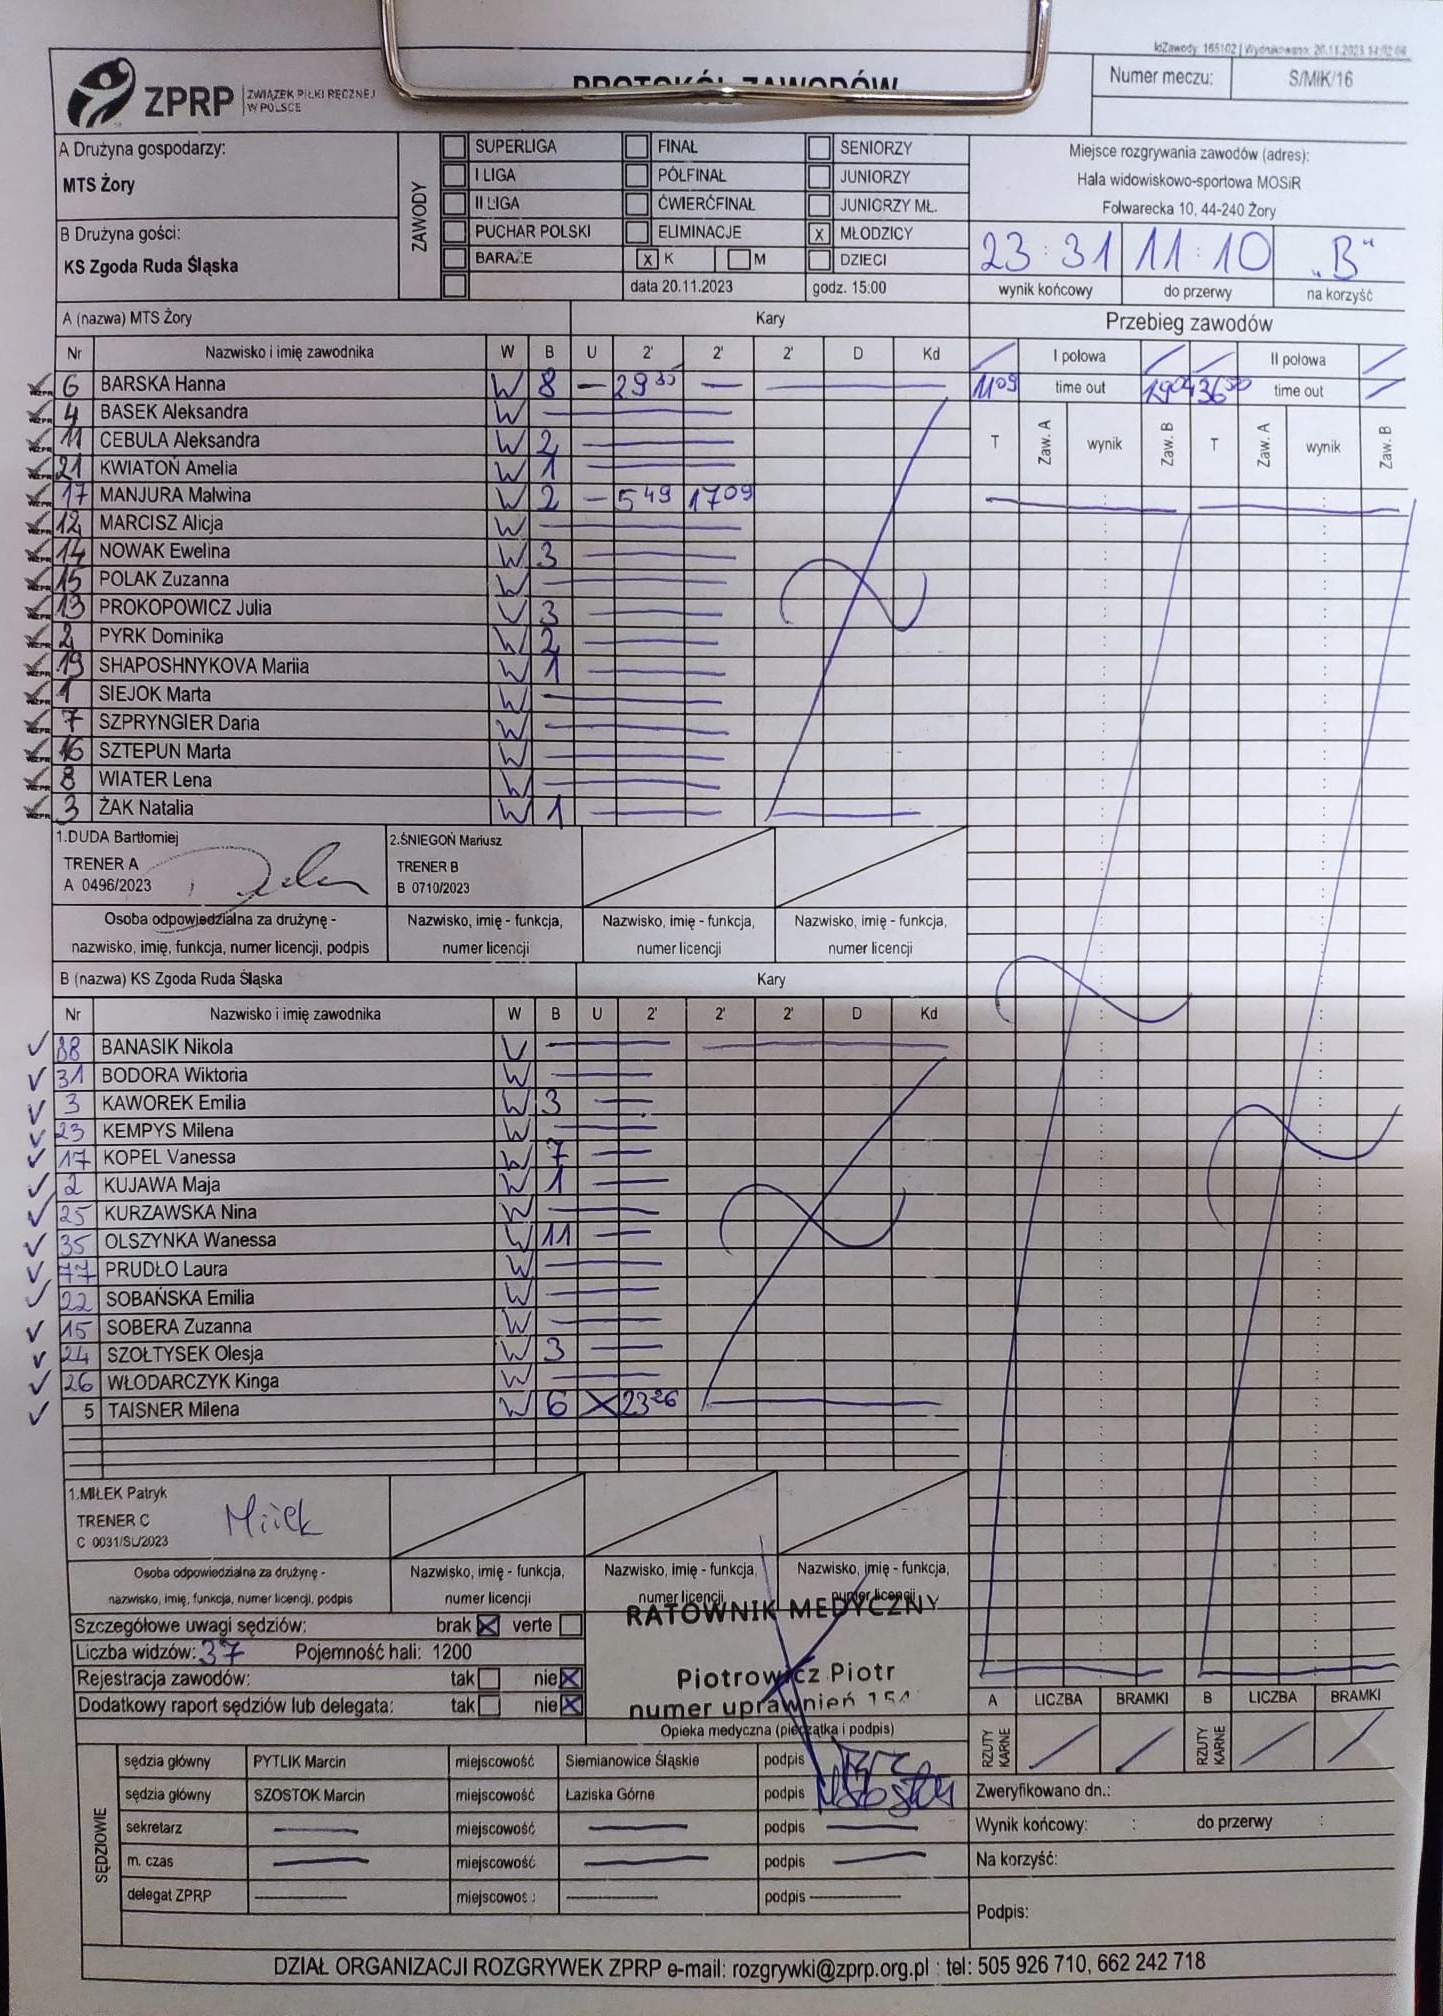 idZawody: 165102 | Wydrukowano: 20.11.2023
ZPRP ZWIĄZEK PIŁKI RĘCZNEJ W POLSCE
PROTOKÓŁ ZAWODÓW
Numer meczu: S/MłK/16
A Drużyna gospodarzy:
MTS Żory
B Drużyna gości:
KS Zgoda Ruda Śląska
ZAWODY
SUPERLIGA FINAŁ SENIORZY
I LIGA PÓŁFINAŁ JUNIORZY
II LIGA ĆWIERĆFINAŁ JUNIORZY MŁ.
PUCHAR POLSKI ELIMINACJE x MŁODZICY
BARAŻE x K M DZIECI
data 20.11.2023 godz. 15:00
Miejsce rozgrywania zawodów (adres):
Hala widowiskowo-sportowa MOSiR
Folwarecka 10, 44-240 Żory
23:31 11:10 „B"
wynik końcowy do przerwy na korzyść
A (nazwa) MTS Żory Kary
Nr Nazwisko i imię zawodnika W B U 2' 2' 2' D Kd
6 BARSKA Hanna W 8 — 29 35 —
4 BASEK Aleksandra W
11 CEBULA Aleksandra W 2
21 KWIATOŃ Amelia W 1
17 MANJURA Malwina W 2 — 5 49 17 09
12 MARCISZ Alicja W
14 NOWAK Ewelina W 3
15 POLAK Zuzanna W
13 PROKOPOWICZ Julia W 3
2 PYRK Dominika W 2
19 SHAPOSHNYKOVA Mariia W 1
1 SIEJOK Marta W
7 SZPRYNGIER Daria W
16 SZTEPUN Marta W
8 WIATER Lena W
3 ŻAK Natalia W 1
1.DUDA Bartłomiej
TRENER A
A 0496/2023
2.ŚNIEGOŃ Mariusz
TRENER B
B 0710/2023
Osoba odpowiedzialna za drużynę -
nazwisko, imię, funkcja, numer licencji, podpis
Nazwisko, imię - funkcja,
numer licencji
Nazwisko, imię - funkcja,
numer licencji
Nazwisko, imię - funkcja,
numer licencji
Przebieg zawodów
I połowa II połowa
11 09 time out 19 04 36 50 time out
T Zaw. A wynik Zaw. B T Zaw. A wynik Zaw. B
B (nazwa) KS Zgoda Ruda Śląska Kary
Nr Nazwisko i imię zawodnika W B U 2' 2' 2' D Kd
88 BANASIK Nikola W
31 BODORA Wiktoria W
3 KAWOREK Emilia W 3
23 KEMPYS Milena W
17 KOPEL Vanessa W 7
2 KUJAWA Maja W 1
25 KURZAWSKA Nina W
35 OLSZYNKA Wanessa W 11
77 PRUDŁO Laura W
22 SOBAŃSKA Emilia W
15 SOBERA Zuzanna W
24 SZOŁTYSEK Olesja W 3
26 WŁODARCZYK Kinga W
5 TAISNER Milena W 6 X 23 26
1.MIŁEK Patryk
TRENER C
C 0031/SL/2023
Miłek
Osoba odpowiedzialna za drużynę -
nazwisko, imię, funkcja, numer licencji, podpis
Nazwisko, imię - funkcja,
numer licencji
Nazwisko, imię - funkcja,
numer licencji
Nazwisko, imię - funkcja,
numer licencji
Szczegółowe uwagi sędziów: brak X verte
Liczba widzów: 37 Pojemność hali: 1200
Rejestracja zawodów: tak nie X
Dodatkowy raport sędziów lub delegata: tak nie X
RATOWNIK MEDYCZNY
Piotrowicz Piotr
numer uprawnień
Opieka medyczna (pieczątka i podpis)
A LICZBA BRAMKI B LICZBA BRAMKI
RZUTY KARNE RZUTY KARNE
SĘDZIOWIE
sędzia główny PYTLIK Marcin miejscowość Siemianowice Śląskie podpis
sędzia główny SZOSTOK Marcin miejscowość Łaziska Górne podpis
sekretarz — miejscowość — podpis —
m. czas — miejscowość — podpis —
delegat ZPRP — miejscowość: — podpis —
Zweryfikowano dn.:
Wynik końcowy: : do przerwy :
Na korzyść:
Podpis:
DZIAŁ ORGANIZACJI ROZGRYWEK ZPRP e-mail: rozgrywki@zprp.org.pl ; tel: 505 926 710, 662 242 718